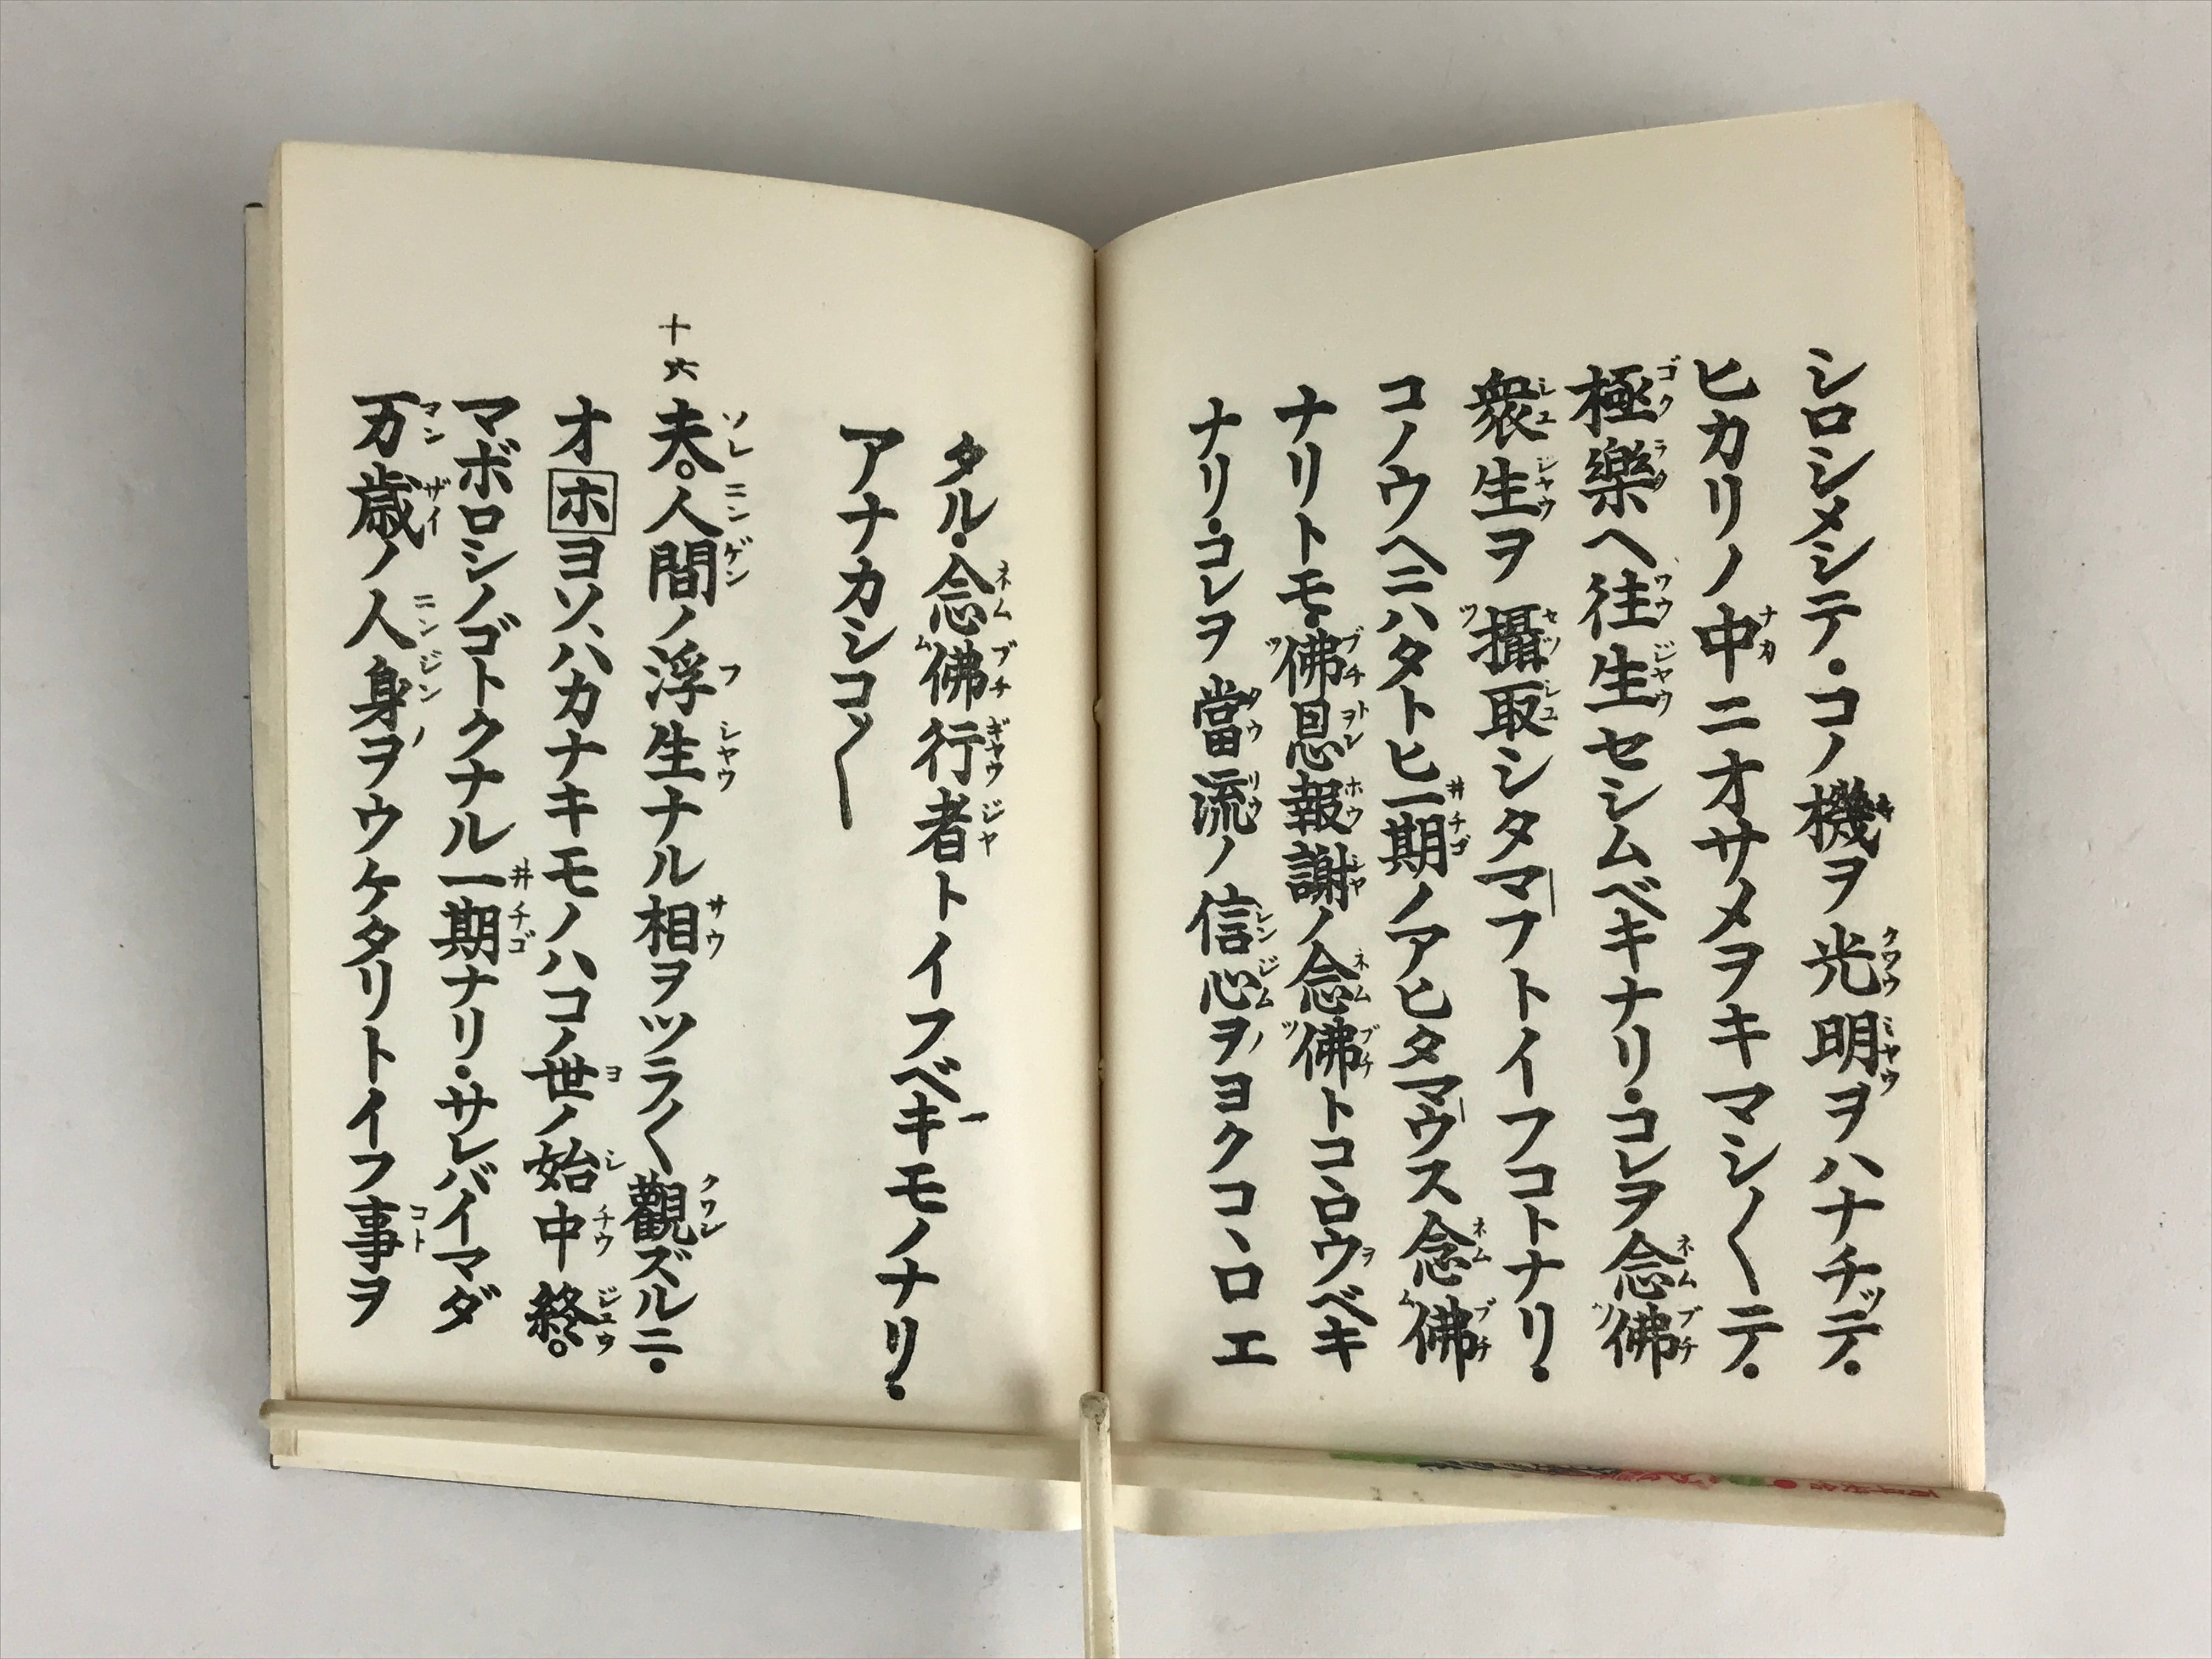 シロシメシテ・コノ機ヲ光明ヲハナチッテ・
ヒカリノ中ニオサメヲキマシ〳〵テ・
極樂ヘ往生セシムベキナリ・コレヲ念佛
衆生ヲ攝取シタマフトイフコトナリ・
コノウヘニハタトヒ一期ノアヒタマウス念佛
ナリトモ・佛恩報謝ノ念佛トコヽロウベキ
ナリ・コレヲ當流ノ信心ヲヨクコヽロエ
タル・念佛行者トイフベキモノナリ・
アナカシコ〳〵
十六
夫。人間ノ浮生ナル相ヲツラ〳〵觀ズルニ・
オホヨソ、ハカナキモノハコノ世ノ始中終。
マボロシノゴトクナル一期ナリ・サレバイマダ
万歳ノ人身ヲウケタリトイフ事ヲ